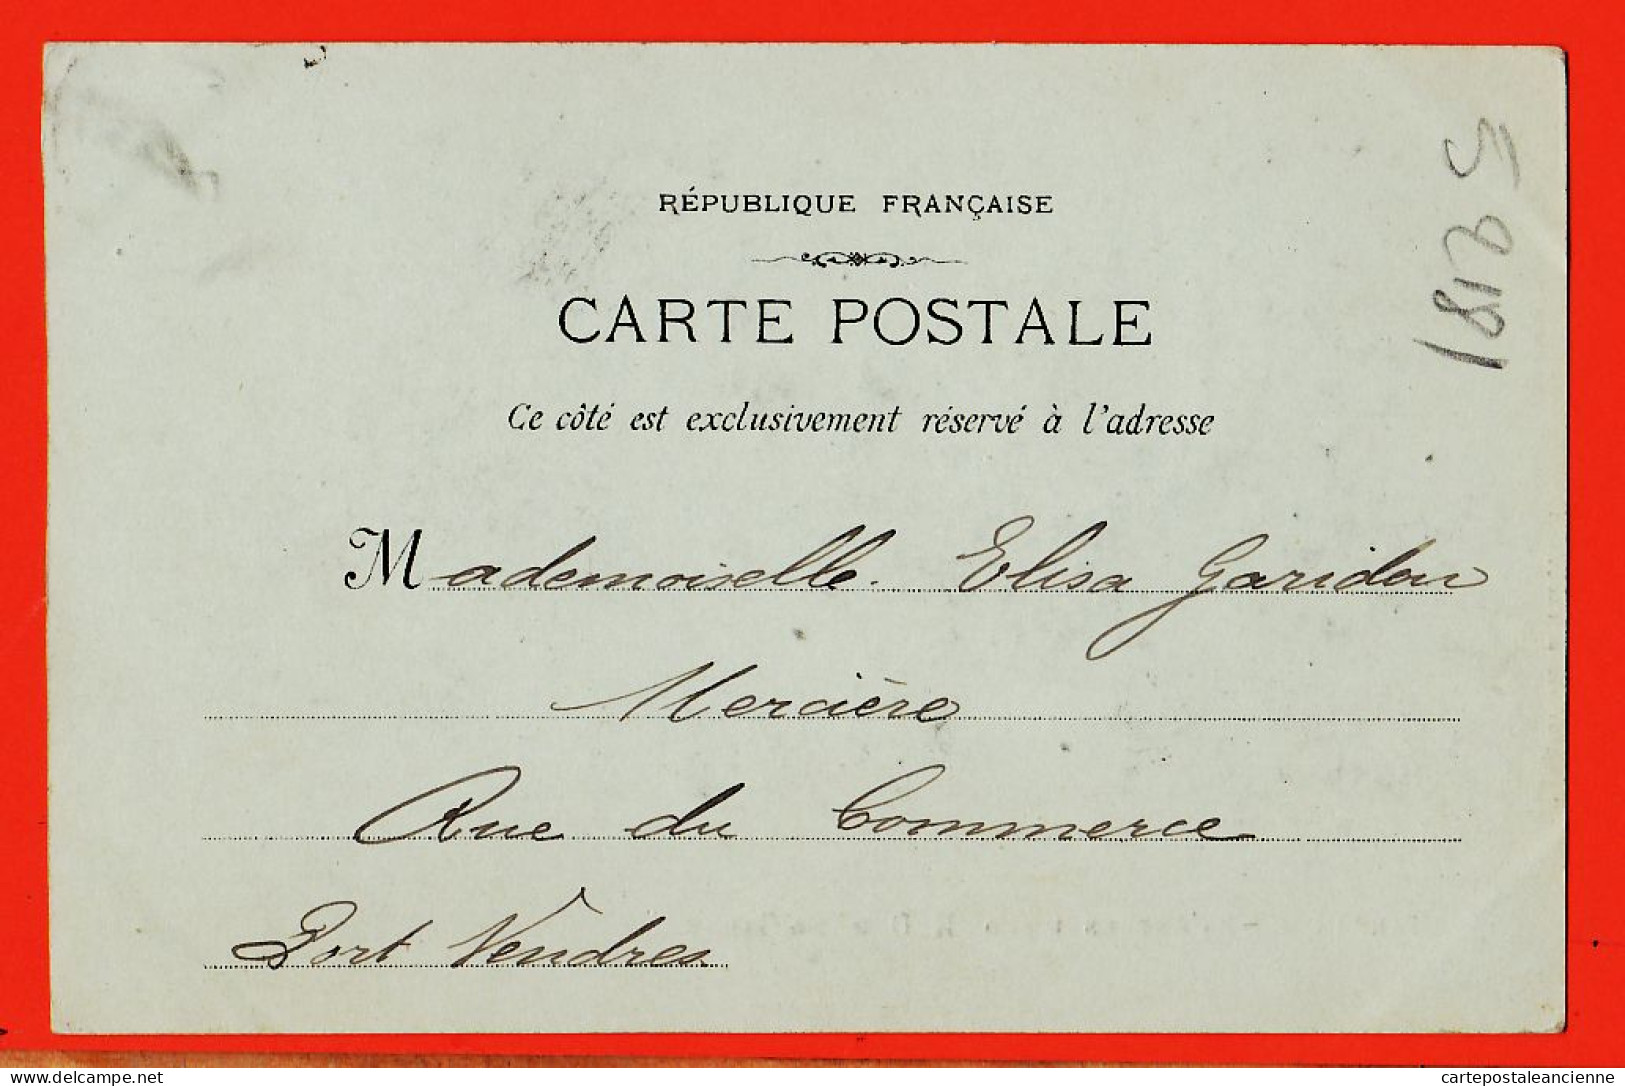 RÉPUBLIQUE FRANÇAISE
CARTE POSTALE
Ce côté est exclusivement réservé à l'adresse
Mademoiselle Elisa Garidou
Mercière
Rue du Commerce
Port Vendres
delcampe.net
cartepostaleancienne